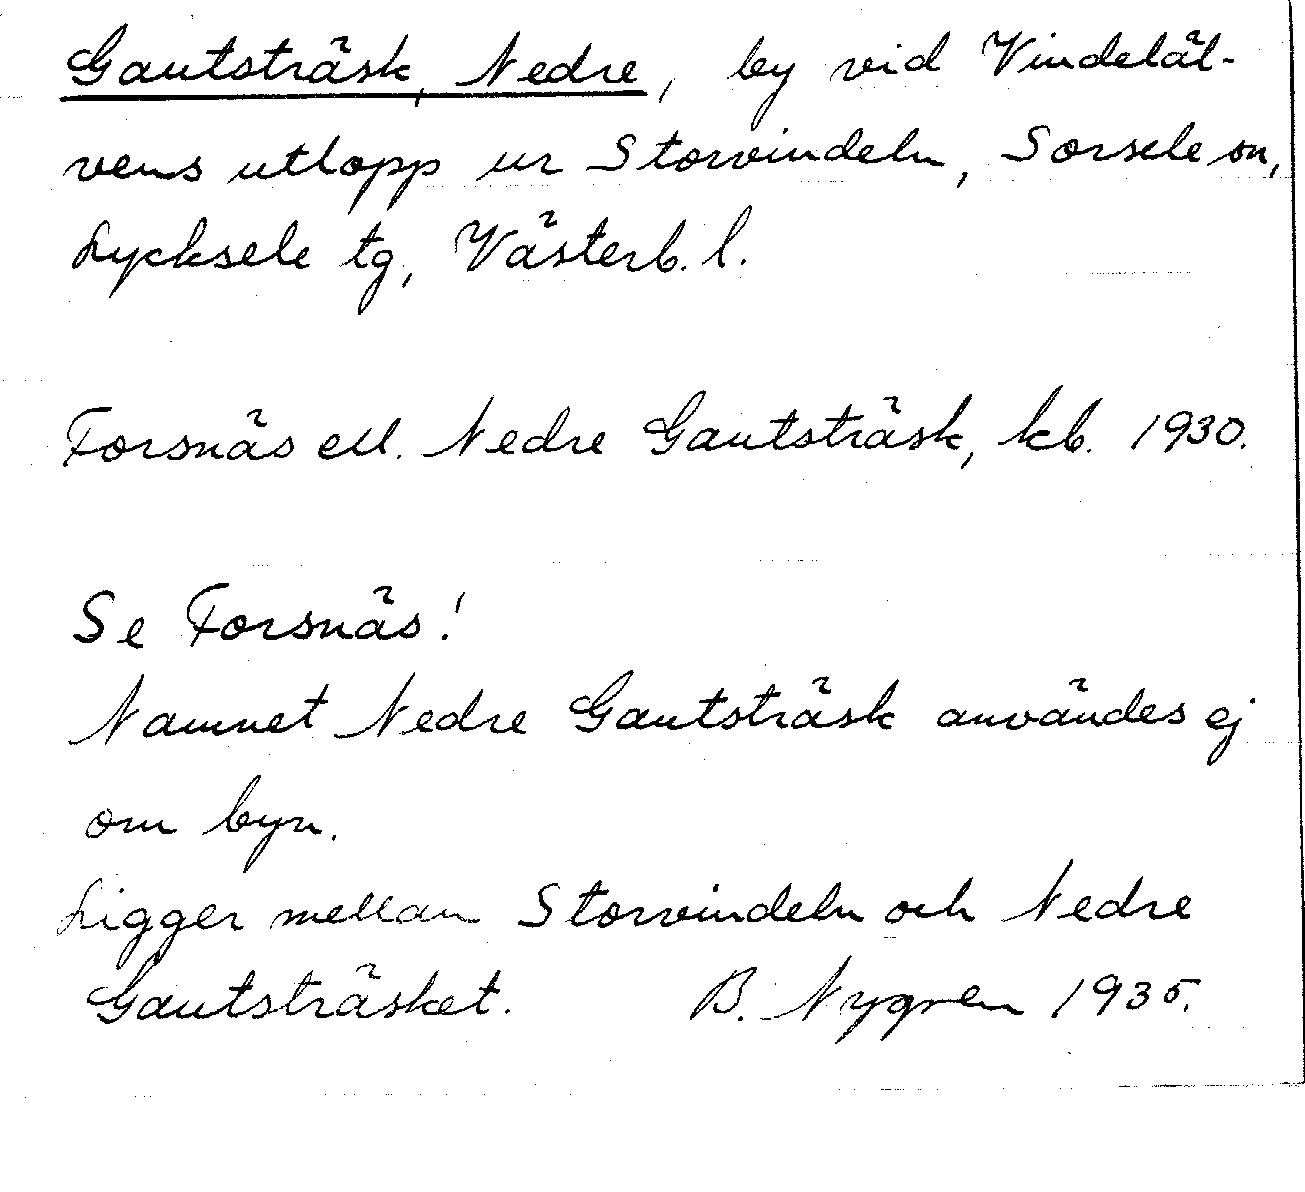 Gautsträsk, Nedre, by vid Vindeläl-
vens utlopp ur Storvindeln, Sorsele sn,
Lycksele tg, Västerb. l.
Forsnäs ell. Nedre Gautsträsk, kb. 1930.
Se Forsnäs!
Namnet Nedre Gautsträsk användes ej
om byn.
Ligger mellan Storvindeln och Nedre
Gautsträsket. B. Nygren 1935.